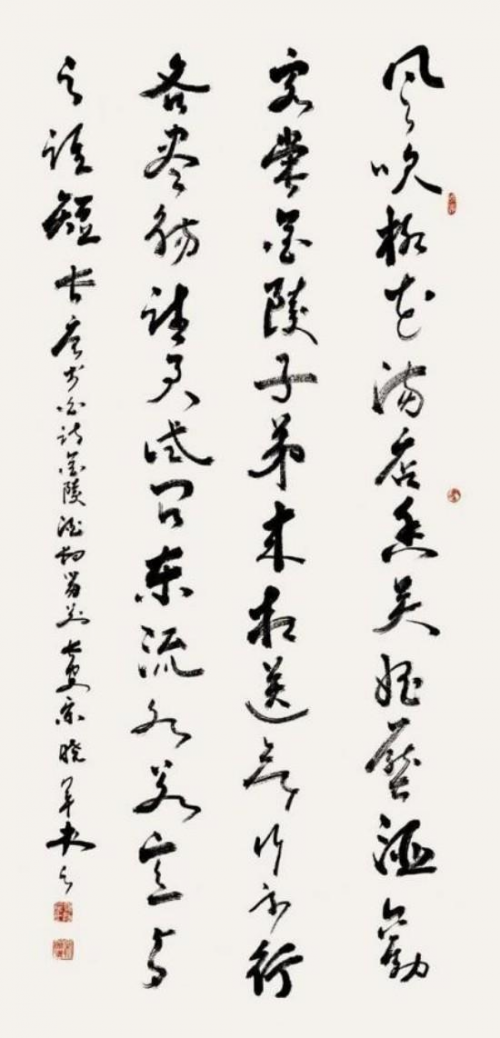 风吹柳花满店香吴姬压酒劝
客尝金陵子弟来相送欲行不行
各尽觞请君试问东流水别意与
之谁短长 李白诗金陵酒肆留别 长夏宋晓军书